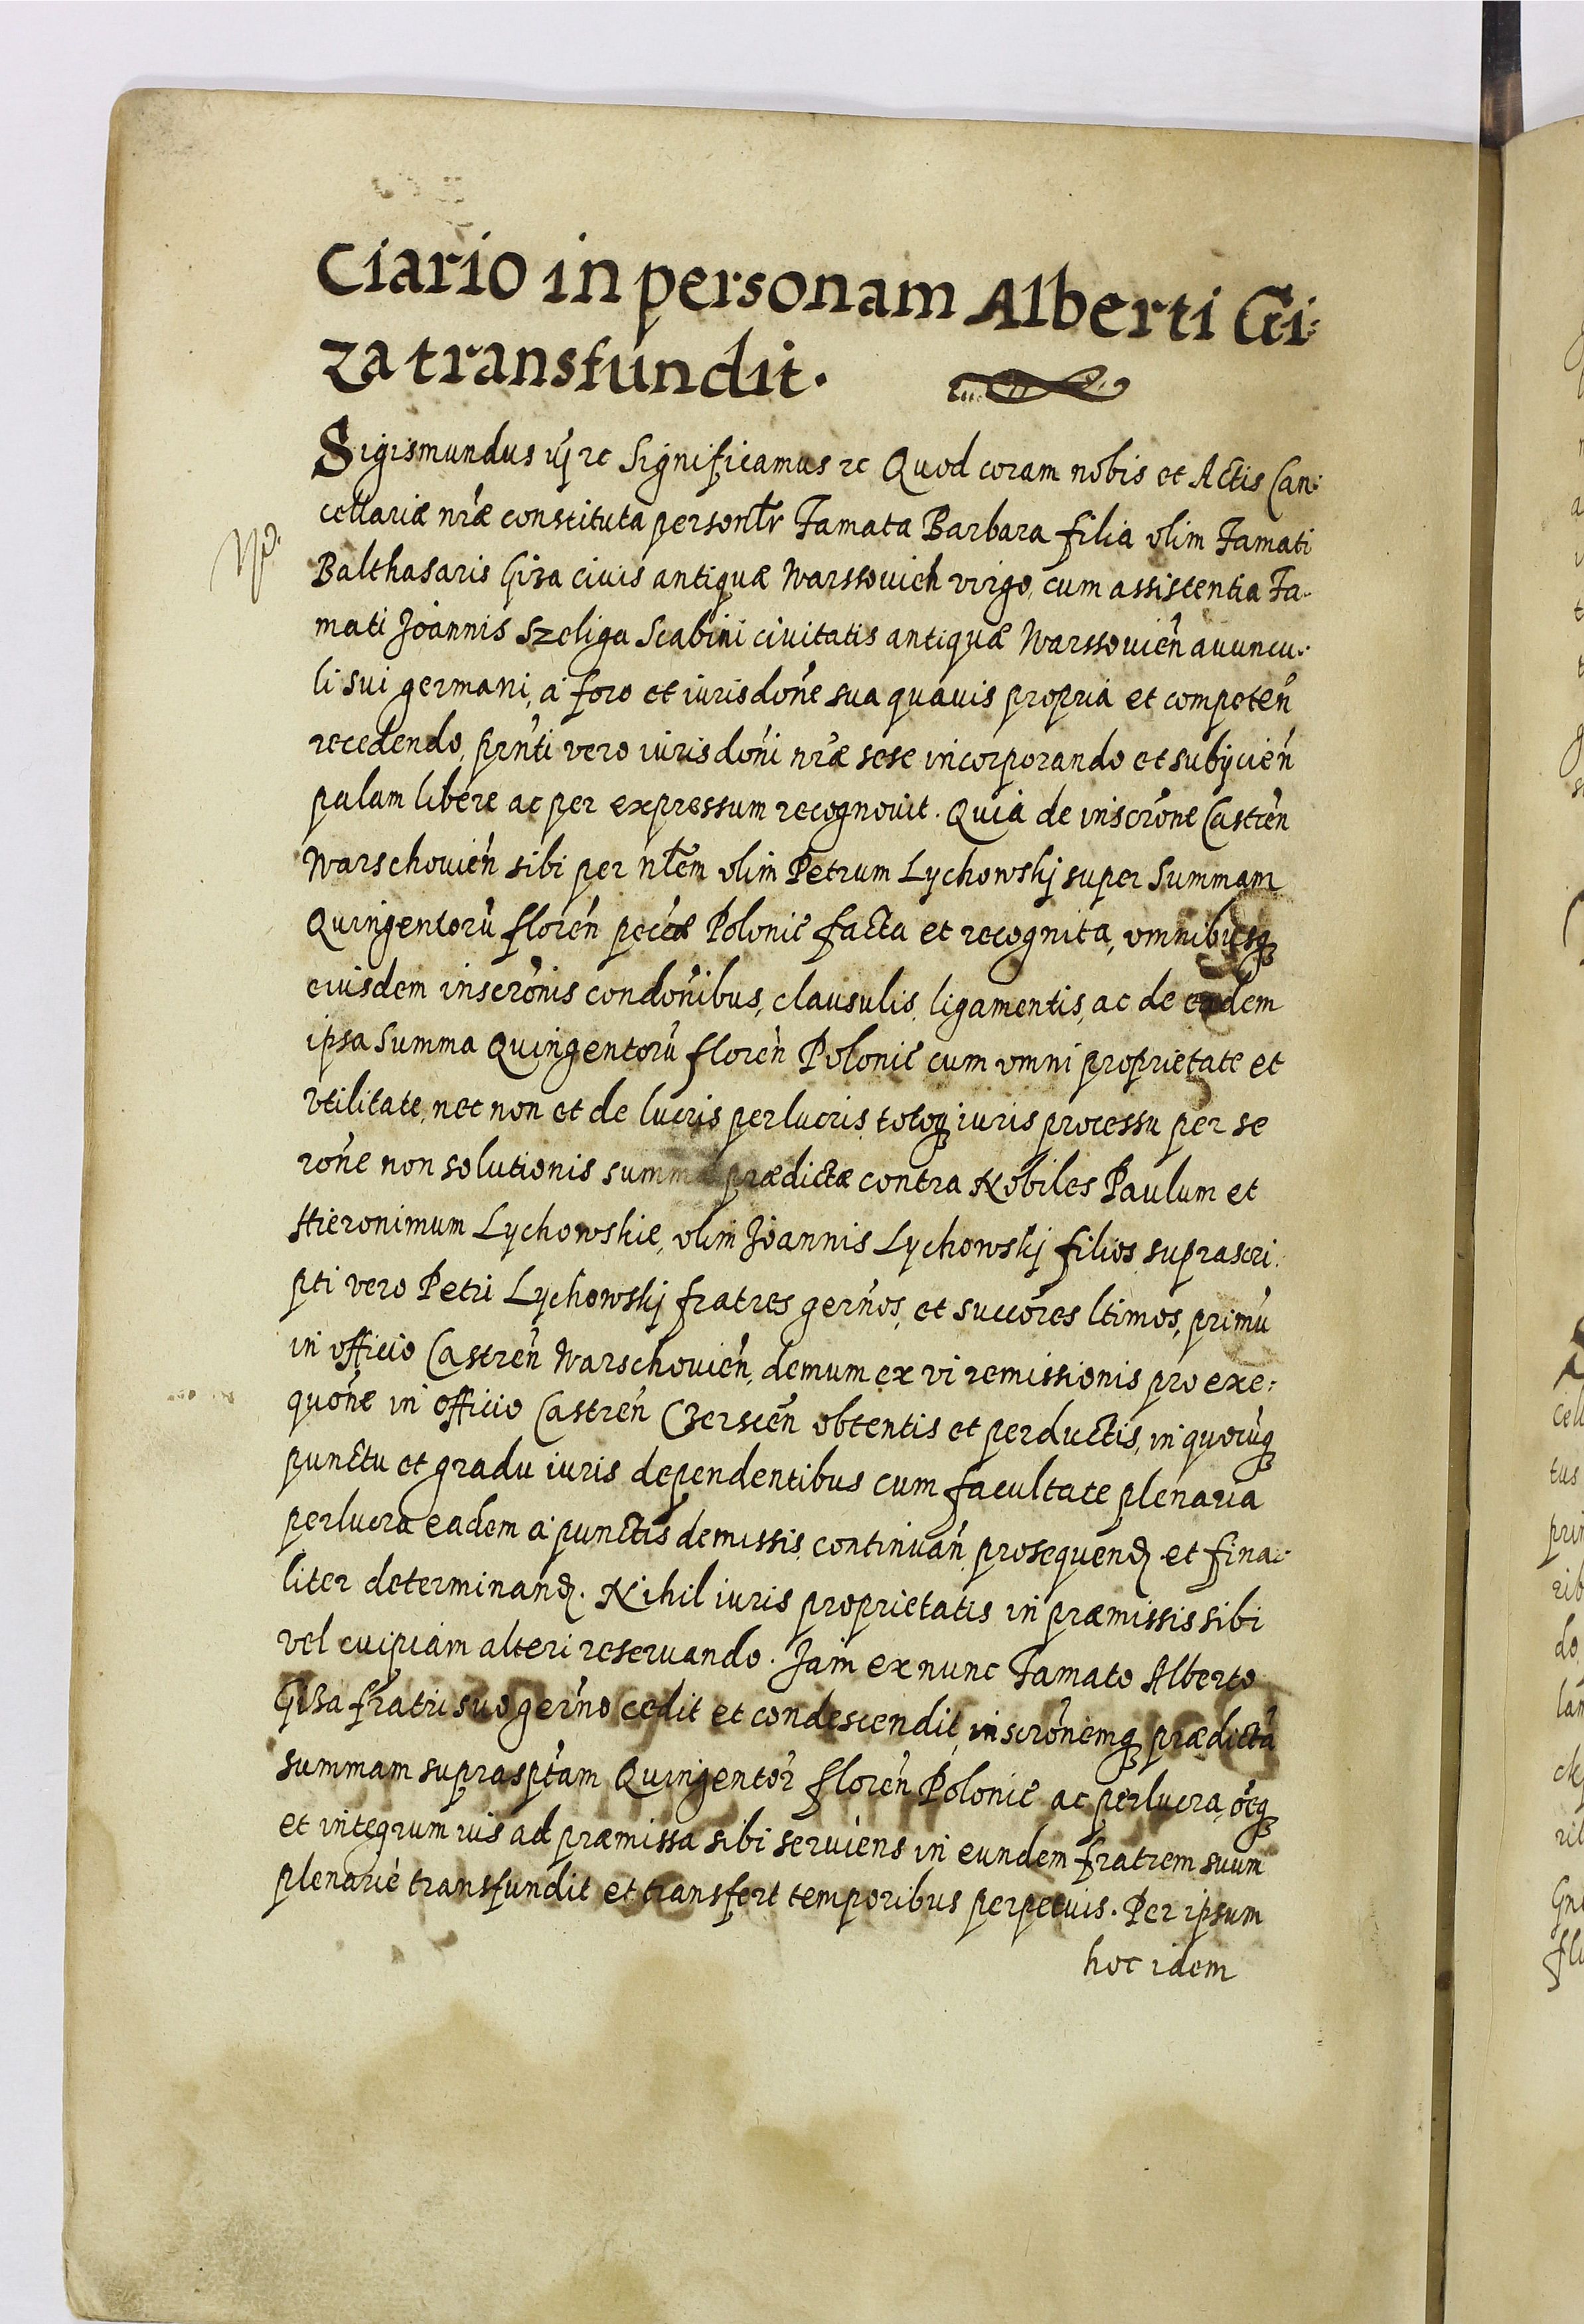 Ciario in personam Alberti Gi:
za transfundit.
Sigismundus iij ꝛc Significamus ꝛc Quod coram nobis et Actis Can:
cellariæ nr̃æ constituta personlr̃ Famata Barbara filia olim Famati
Balthasaris Giza ciuis antiquæ Warssouień virgo, cum assistentia Fa-
mati Joannis Szeliga Scabini ciuitatis antiquæ Warssouień auuncu-
li sui germani, à foro et iurisdońe sua quauis propria et competeń
recedendo, prńti vero iurisdońi nr̃æ sese incorporando et subijcień
palam libere ac per expressum recognouit. Quia de inscrõne Castreń
Warschouień sibi per nłem olim Petrum Lychowskj super Summam
Quingentorũ floreń pecũæ Polonic facta et recognita, omnibusq̃
eiusdem inscrõnis condoñibus, clausulis, ligamentis, ac de eadem
ipsa Summa Quingentorũ floreń Polonic cum omni proprietate et
vtilitate, nec non et de lucris perlucris, totoq̃ iuris processu per se
rońe non solutionis summæ prædictæ contra Nobiles Paulum et
Hieronimum Lychowskie, olim Joannis Lychowskj filios, suprascri:
pti vero Petri Lychowskj fratres gerños, et succõres ltimos, primũ
in officio Castreń Warschouień, demum ex vi remissionis pro exe:
quońe in officio Castreń Czerscień obtentis et perductis, in quocũq̃
punctu et gradu iuris dependentibus cum facultate plenaria
perlucra eadem à punctis demissis continuań prosequenđ et fina-
liter determinanđ. Nihil iuris proprietatis in præmissis sibi
vel cuipiam alteri reseruando. Jam ex nunc Famato Alberto
Giza fratri suo gerño cedit et condescendit, inscrõnemq̃ prædictã
summam supraspt̃am Quingentor̃ floreń Polonic ac perlucra, oẽq̃
et integrum ius ad præmissa sibi seruiens in eundem fratrem suum
plenariè transfundit et transfert temporibus perpetuis. Per ipsum
hoc idem